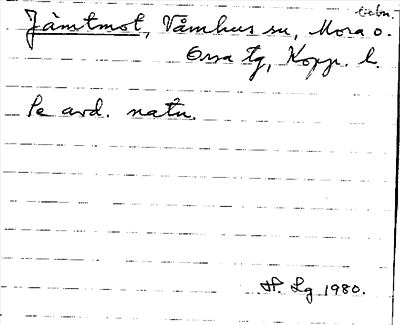 Bebn.
Jämtmot, Våmhus sn, Mora o.
Orsa tg, Kopp. l.
Se avd. natn.
H. Lg 1980.